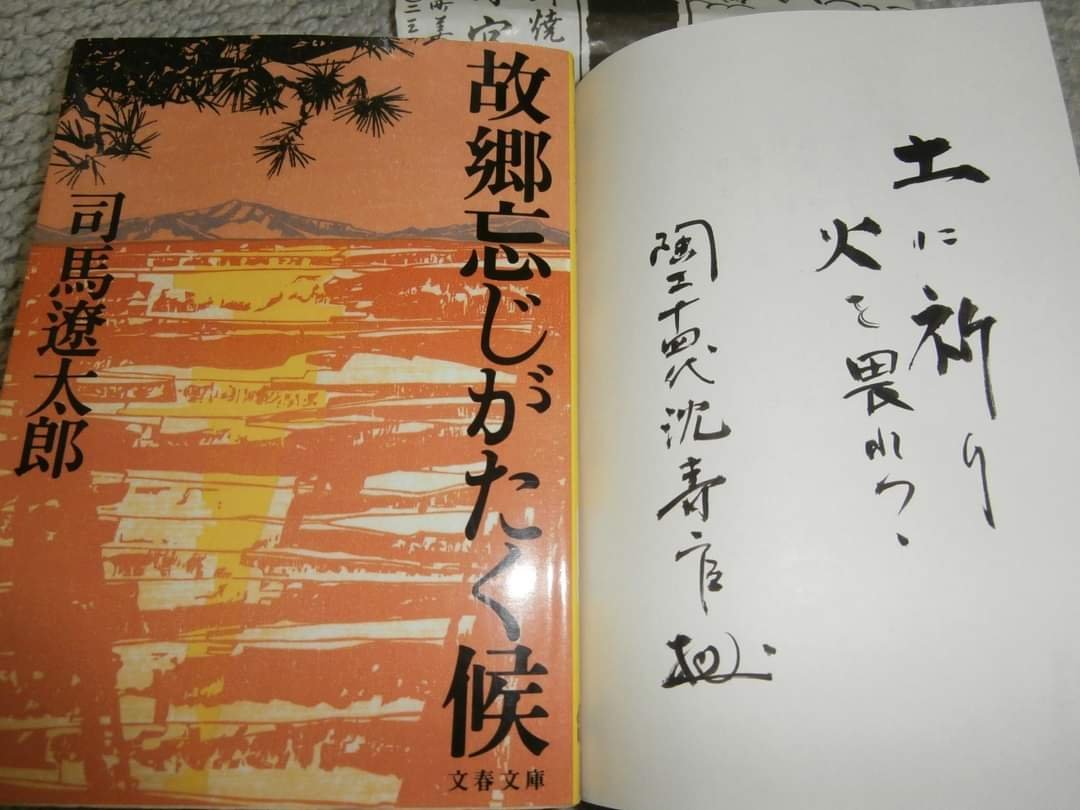 故郷忘じがたく候
司馬遼太郎
文春文庫
土に祈り
火を畏れつゝ
陶工十四代沈寿官
焼